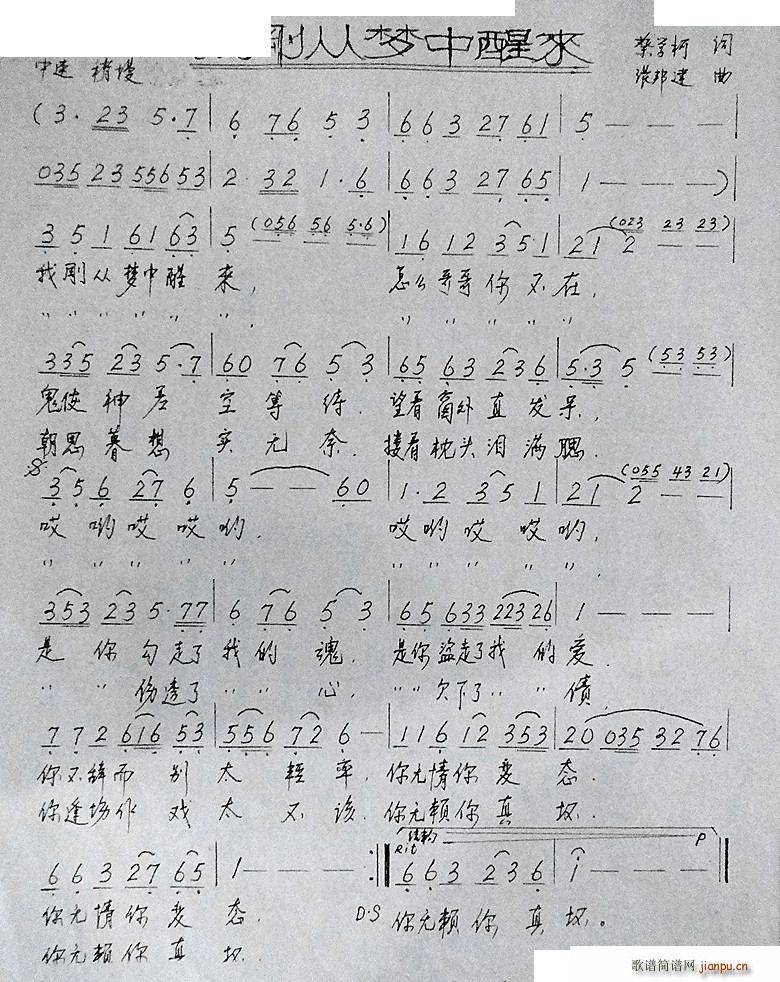 刚从梦中醒来
词
中速 曲
(3· 23 5·7 | 6 76 5 3 | 663 2761 | 5 — — — |
035 23 55653 | 2·32 1·6 | 663 2765 | 1 — — — )
3 5 1 61 63 | 5 (056 56 5·6) | 16 12 3 5·1 | 21 2 (023 23 23) |
我刚从梦中醒来, 怎么哥哥你不在,
〃 〃 〃 〃 〃 〃, 〃 〃 〃 〃
335 23 5·7 | 60 76 5 3 | 65 63 23 6 | 5·3 5 (53 53) |
鬼使神居空等待. 望着窗外直发呆,
朝思暮想实无奈. 搂着枕头泪满腮.
3 5 6 27 6 | 5 — — 60 | 1·2 35 1 | 21 2 (055 43 21) |
哎哟哎哎哟, 哎哟哎哎哟,
〃 〃 〃 〃 〃, 〃 〃 〃 〃 〃,
353 23 5·77 | 6 76 5 3 | 65 633 223 26 | 1 — — — |
是你勾走了我的魂. 是你盗走了我的爱.
〃 〃 伤透了 〃 〃 心, 〃〃 欠下了 〃 〃 债,
7 7 2 616 53 | 556 72 6 — | 116 12 353 | 20 035 32 76 |
你不辞而别太轻率, 你无情你变态.
你逢场作戏太不该, 你无赖你真坏.
结束句
Rit P
6 6 3 27 65 | 1 — — — :‖ 663 23 6 | i — — — ‖
你无情你变态. D·S 你无赖你真坏。
你无赖你真坏.
歌谱简谱网 jianpu.cn